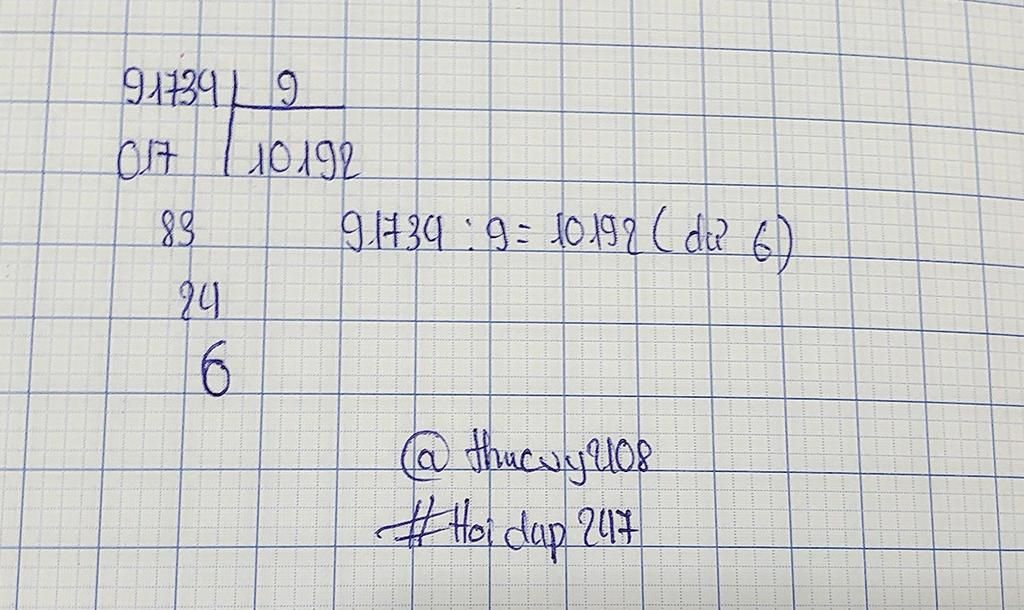 91734 9
017 10192
83
91734 : 9 = 10192 ( dư 6 )
24
6
@ thucvy2108
#Hoi dap 247